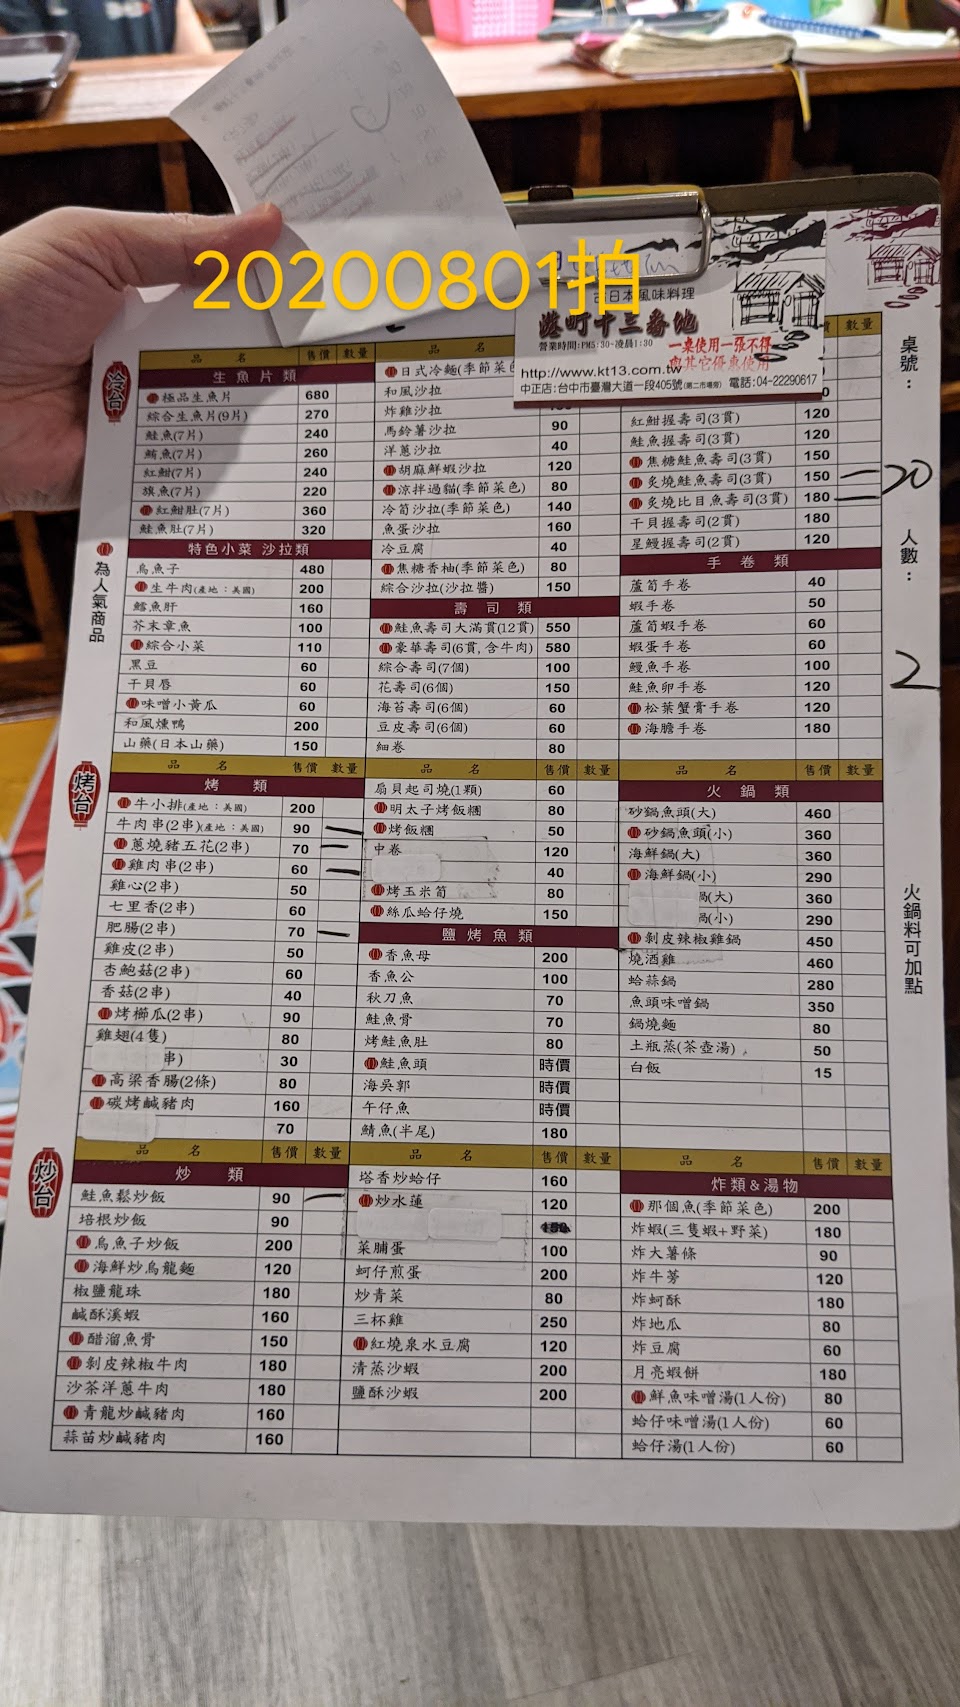 20200801拍
古日本風味料理
港町十三番地
營業時間:PM5:30~凌晨1:30
一桌使用一張不得
與其它優惠使用
http://www.kt13.com.tw
中正店:台中市臺灣大道一段405號(第二市場旁) 電話:04-22290617
桌號:
20
人數:
2
火鍋料可加點
為人氣商品
冷台
品名 售價 數量
生魚片類
極品生魚片 680
綜合生魚片(9片) 270
鮭魚(7片) 240
鮪魚(7片) 260
紅魽(7片) 240
旗魚(7片) 220
紅魽肚(7片) 360
鮭魚肚(7片) 320
特色小菜 沙拉類
烏魚子 480
生牛肉(產地:美國) 200
鱈魚肝 160
芥末章魚 100
綜合小菜 110
黑豆 60
干貝唇 60
味噌小黃瓜 60
和風燻鴨 200
山藥(日本山藥) 150
品名
日式冷麵(季節菜色
和風沙拉
炸雞沙拉
馬鈴薯沙拉 90
洋蔥沙拉 40
胡麻鮮蝦沙拉 120
涼拌過貓(季節菜色) 80
冷筍沙拉(季節菜色) 140
魚蛋沙拉 160
冷豆腐 40
焦糖香柚(季節菜色) 80
綜合沙拉(沙拉醬) 150
壽司類
鮭魚壽司大滿貫(12貫) 550
豪華壽司(6貫,含牛肉) 580
綜合壽司(7個) 100
花壽司(6個) 150
海苔壽司(6個) 60
豆皮壽司(6個) 60
細卷 80
數量
紅魽握壽司(3貫) 120
鮭魚握壽司(3貫) 120
焦糖鮭魚壽司(3貫) 150
炙燒鮭魚壽司(3貫) 150
炙燒比目魚壽司(3貫) 180
干貝握壽司(2貫) 180
星鰻握壽司(2貫) 120
手卷類
蘆筍手卷 40
蝦手卷 50
蘆筍蝦手卷 60
蝦蛋手卷 60
鰻魚手卷 100
鮭魚卵手卷 120
松葉蟹膏手卷 120
海膽手卷 180
烤台
品名 售價 數量
烤類
牛小排(產地:美國) 200
牛肉串(2串)(產地:美國) 90
蔥燒豬五花(2串) 70
雞肉串(2串) 60
雞心(2串) 50
七里香(2串) 60
肥腸(2串) 70
雞皮(2串) 50
杏鮑菇(2串) 60
香菇(2串) 40
烤櫛瓜(2串) 90
雞翅(4隻) 80
串) 30
高粱香腸(2條) 80
碳烤鹹豬肉 160
70
品名 售價 數量
扇貝起司燒(1顆) 60
明太子烤飯糰 80
烤飯糰 50
中卷 120
40
烤玉米筍 80
絲瓜蛤仔燒 150
鹽烤魚類
香魚母 200
香魚公 100
秋刀魚 70
鮭魚骨 70
烤鮭魚肚 80
鮭魚頭 時價
海吳郭 時價
午仔魚 時價
鯖魚(半尾) 180
品名 售價 數量
火鍋類
砂鍋魚頭(大) 460
砂鍋魚頭(小) 360
海鮮鍋(大) 360
海鮮鍋(小) 290
鍋(大) 360
鍋(小) 290
剝皮辣椒雞鍋 450
燒酒雞 460
蛤蒜鍋 280
魚頭味噌鍋 350
鍋燒麵 80
土瓶蒸(茶壺湯) 50
白飯 15
炒台
品名 售價 數量
炒類
鮭魚鬆炒飯 90
培根炒飯 90
烏魚子炒飯 200
海鮮炒烏龍麵 120
椒鹽龍珠 180
鹹酥溪蝦 160
醋溜魚骨 150
剝皮辣椒牛肉 180
沙茶洋蔥牛肉 180
青龍炒鹹豬肉 160
蒜苗炒鹹豬肉 160
品名 售價 數量
塔香炒蛤仔 160
炒水蓮 120
菜脯蛋 100
蚵仔煎蛋 200
炒青菜 80
三杯雞 250
紅燒泉水豆腐 120
清蒸沙蝦 200
鹽酥沙蝦 200
品名 售價 數量
炸類&湯物
那個魚(季節菜色) 200
炸蝦(三隻蝦+野菜) 180
炸大薯條 90
炸牛蒡 120
炸蚵酥 180
炸地瓜 80
炸豆腐 60
月亮蝦餅 180
鮮魚味噌湯(1人份) 80
蛤仔味噌湯(1人份) 60
蛤仔湯(1人份) 60